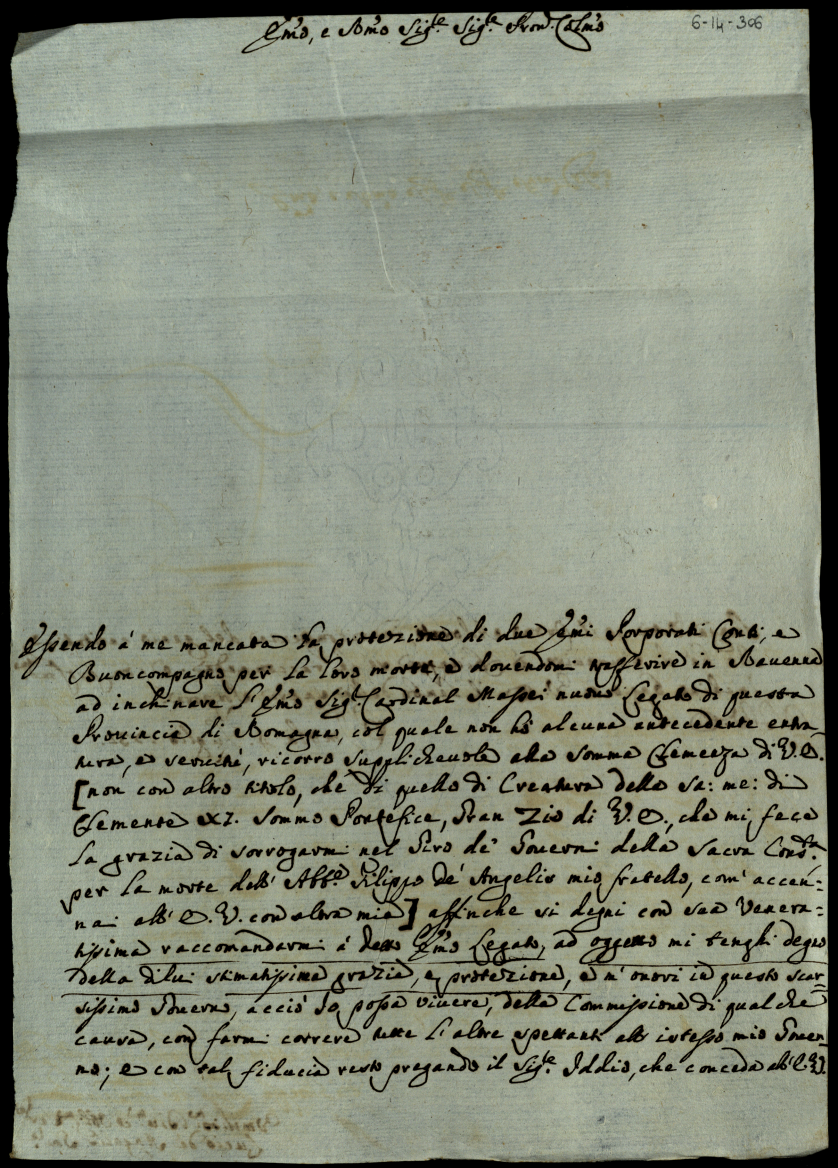 Emo, e Rmo Sigre. Sigre. Pron. Colmo
6-14-306
Essendo á me mancata la protezione di due Emi Porporati Conti, e
Buoncompagno per la loro morte, e dovendomi trasferire in Ravenna
ad inchinare l'Emo Sigr. Cardinal Massei nuovo Legato di questa
Provincia di Romagna, col quale non hó alcuna antecedente entra=
tura, e servitú, ricorro supplichevole alla somma Clemenza di V. E.
[non con altro titolo, che di quello di Creatura della sa: me: di
Clemente XI. Sommo Pontefice, Gran Zio di V. E., che mi fece
la grazia di sorrogarmi nel Giro de' Governi della Sacra Consta.
per la morte dell' Abbe. Filippo de' Angelis mio fratello, com' accen=
nai all' E. V. con altra mia] affinche si degni con sua Venera=
tissima raccomandarmi á detto Emo Legato, ad oggetto mi tenghi degno
della di lui stimatissima grazia, e protezione, e m' onori in questo scar=
sissimo Governo, acció Io possa vivere, della Commissione di qualche
causa, con farmi correre tutte l' altre spettanti all' istesso mio Gover=
no; e con tal fiducia resto pregando il Sigre. Iddio, che conceda all' E. V.